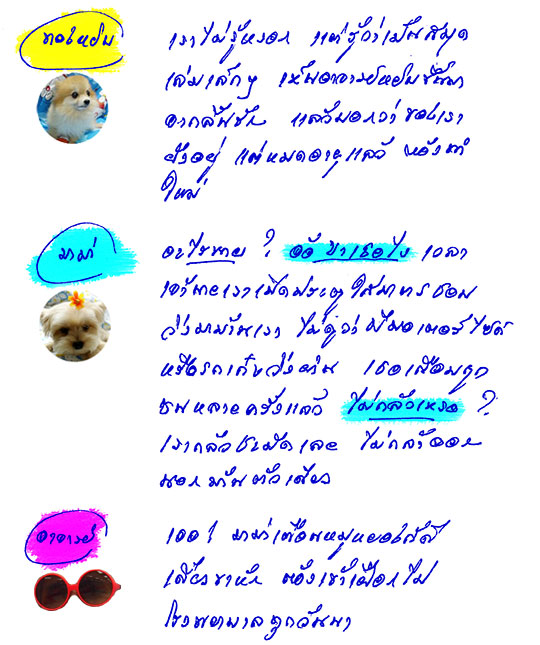 ทองหยิบ
เราไม่รู้หรอก แต่รู้ว่าเป็นสมุด
เล่มเล็กๆ เห็นอาจารย์หยิบขึ้นมา
จากลิ้นชัก แล้วบอกว่าของเรา
ยังอยู่ แต่หมดอายุแล้ว ต้องทำ
ใหม่
มาม่า
อะไรหาย ? อ้อ ป้าเธอไง เวลา
เจ้านายเราเปิดประตู ให้มาหา ชอบ
วิ่งมาบ้านเรา ไม่ดูว่ามีมอเตอร์ไซค์
หรือรถเก๋งวิ่งผ่าน เธอเกือบถูก
ชนหลายครั้งแล้ว ไม่กลัวเหรอ ?
เรากลัวชะมัดเลย ไม่กล้าออก
นอกบ้านตัวเดียว
อาจารย์
เออ ! มาม่าเตือนหมูหยองก็ดี
เดี๋ยวขาหัก ต้องเข้าเฝือกไป
โรงพยาบาลทุกวันนา